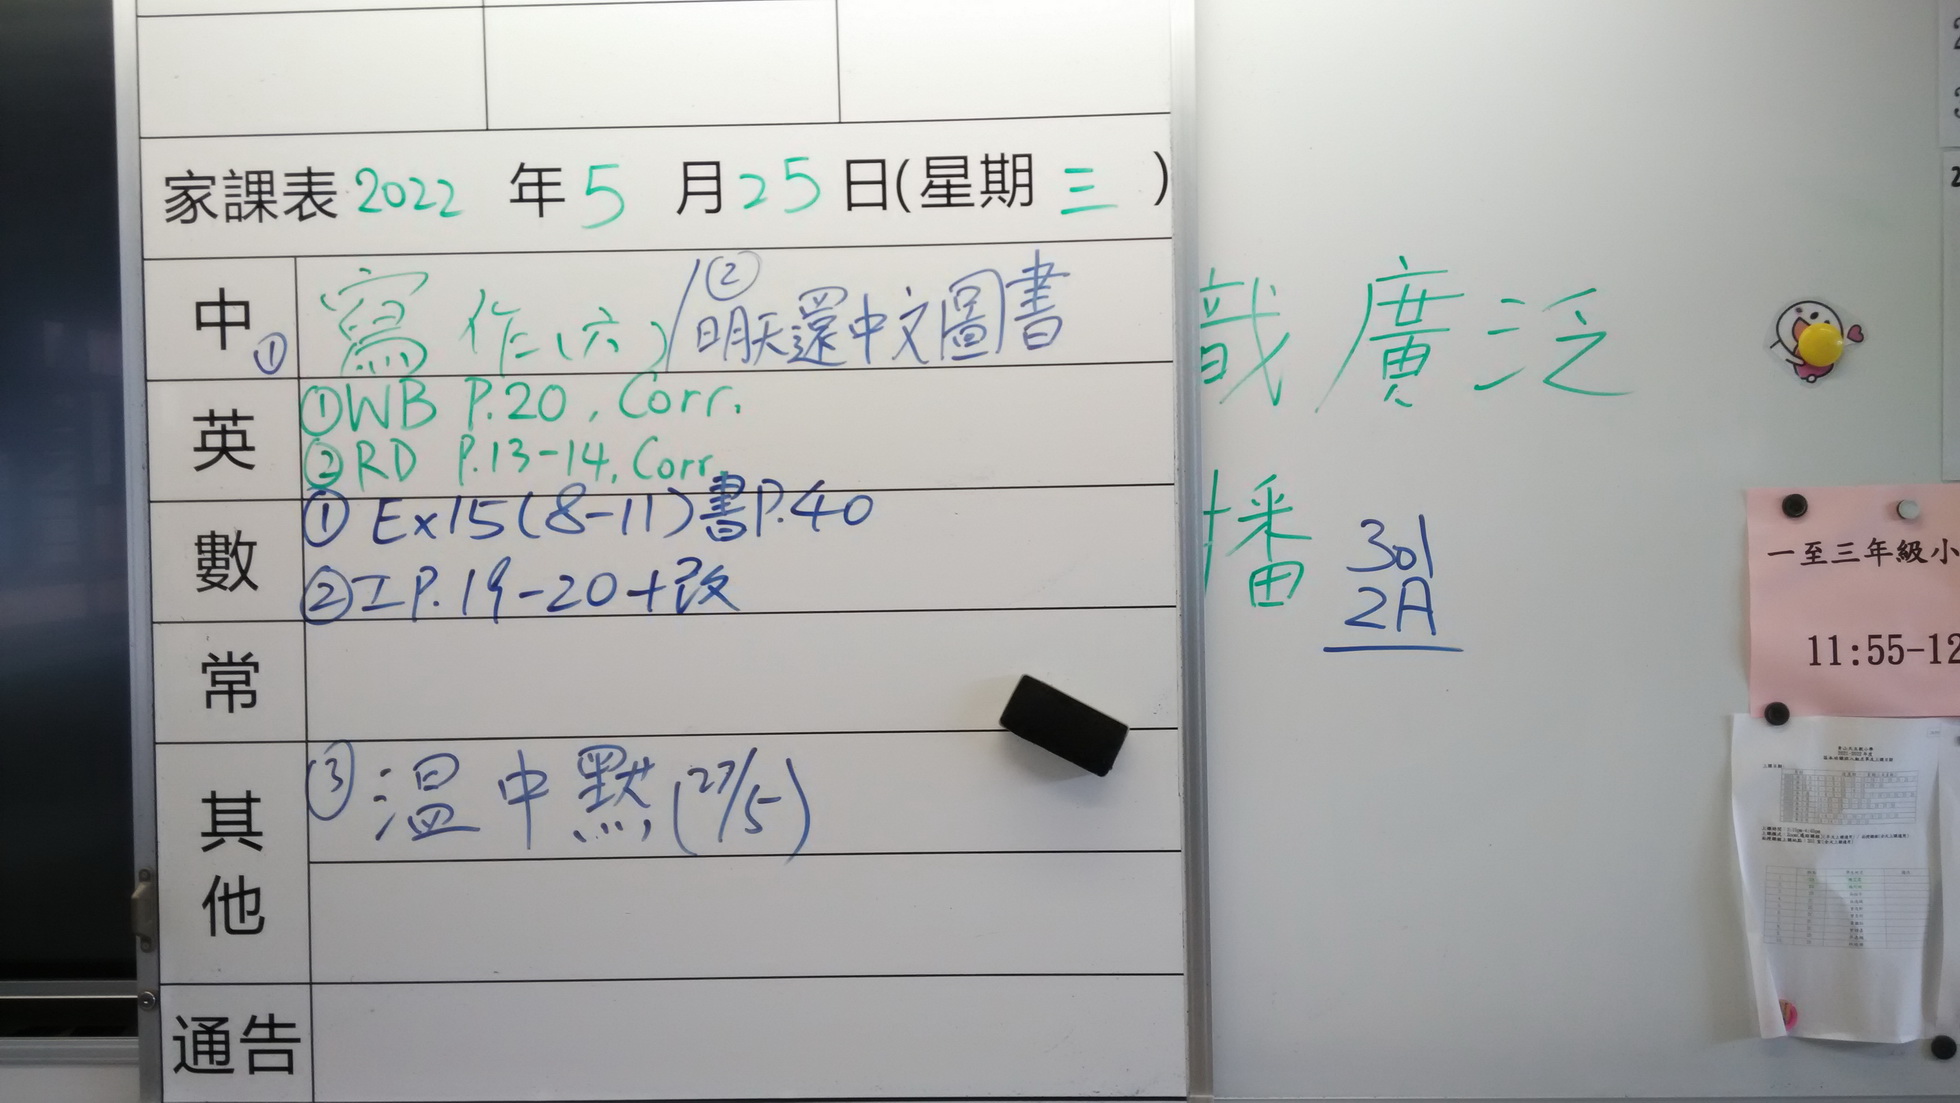 家課表 2022 年 5 月 25 日(星期 三 )
中 ① 寫作(六) / ② 明天還中文圖書
英 ①WB P.20, Corr.
②RD P.13-14, Corr.
數 ① Ex15(8-11)書P.40
②工P.19-20+改
常
其他 ③ 溫中默(27/5)
通告
識廣泛
播
301
2A
一至三年級小
11:55-12